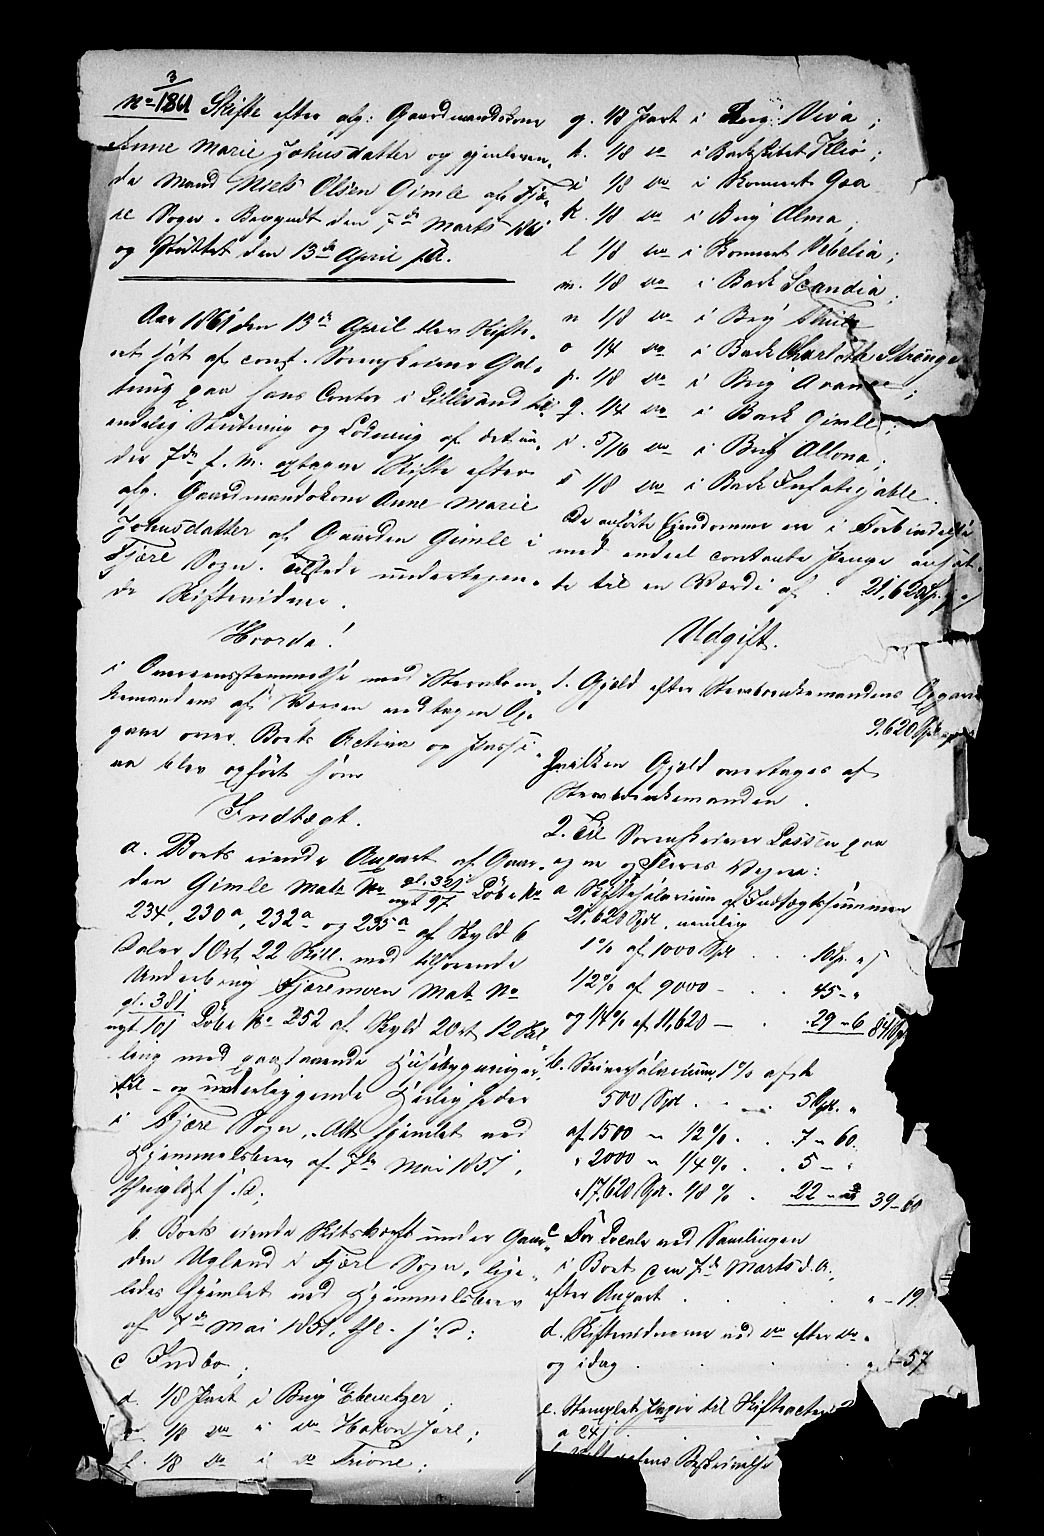 No 3/1861 Skifte efter afg: Gaardmandskone
Anne Marie Johnsdatter og gjenleven-
de Mand Niels Olsen Gimle af Fjæ-
re Sogn. Begyndt den 7de Marts 1861
og Sluttet den 13de April s.A.
Aar 1861 den 13de April blev Skifte-
ret sat af const. Sorenskriver
paa hans Contor i Lillesand til
endelig Slutning og Lodning af det un-
der 7de f. M. optagne Skifte efter
afg. Gaardmandskone Anne Marie
Johnsdatter af Gaarden Gimle i
Fjære Sogn. Tilstede undertegne-
de Skiftevidner.
Hvorda!
i Overensstemmelse med Stervboe-
mandens af Værgen vedtagen Op-
gave over Boets Activa og Passi-
va blev opført som
Indtægt.
a. Boets eiende Anpart af Gaar-
den Gimle Matr No gl. 321/nyt 97 Løbe No
234, 230a, 232a og 235a af Skyld 6
Daler 1 Ort 22 Skill. med tilhørende
Underbrug Fjæremoen Mat. No
gl. 381/nyt 101 Løbe No 252 af Skyld 2 Ort 12 Skil
ling med paastaaende Huusbygninger
til- og underliggende Herligheder
i Fjære Sogn. Alt hjemlet ved
Hjemmelsbrev af 7de Mai 1857,
thinglæst s.D.;
b. Boets eiende Retskræft under Gaar-
den Ugland i Fjære Sogn, lige-
ledes hjemlet ved Hjemmelsbrev
af 7de Mai 1857, thl. s.D.;
c Indbo;
d. 1/8 Part i Brig Ebenetzer;
e. 1/8 do i do Hakon Jarl;
f. 1/8 do i do Trione;
g. 1/8 Part i Brig Viva;
h. 1/8 do i Barkskibet Kleo;
i 1/8 do i Skonnert Gea
k. 1/8 do i Brig Alma,
l 1/8 do i Skonnert Vebelia;
m. 1/8 do i Bark Scandia;
n 1/8 do i Brig
o 1/4 do i Bark Charlotte Strenge
p. 1/8 do i Brig Avance;
q. 1/4 do i Bark Gimle;
r. 5/16 do i Brig Allona;
s 1/8 do i Bark Infatigable.
De anførte Eiendomme ere i Forbindelse
med endeel contante Penge ansat-
te til en Værdi af . 21,620 Sp.
Udgift.
1. Gjæld efter Stervboenkemandens Opgave
9,620 Spd
hvilken Gjæld overtages af
Stervboenkemanden.
2. Til Sorenskriver Lassen paa
egne og Fleres Vegne:
a Skiftesalarium af Indtægtssummen
21,620 Spd, nemlig
1% af 1000 Spd . . 10 Sp. „
1/2% af 9000 – . 45 – „
og 1/4% af 11,620 – . 29 – 6 84 Sp
b. Skriversalarium, 1% af de
500 Spd . . 5 Spd. „
af 1500 – 1/2% . . 7 – 60.
„ 2000 – 1/4% . . 5 – „
„ 17,620 Spd. 1/8% . 22 – 39 – 60
c. For Locale ved Samlingen
i Boet den 7de Marts d.A.,
efter Anpart . . . „ – 19.
d. Skiftevidnerne ved do efter do
og idag . . . – 57
e. Stemplet Papir til Skifteacten
a 24
Beskrivelse